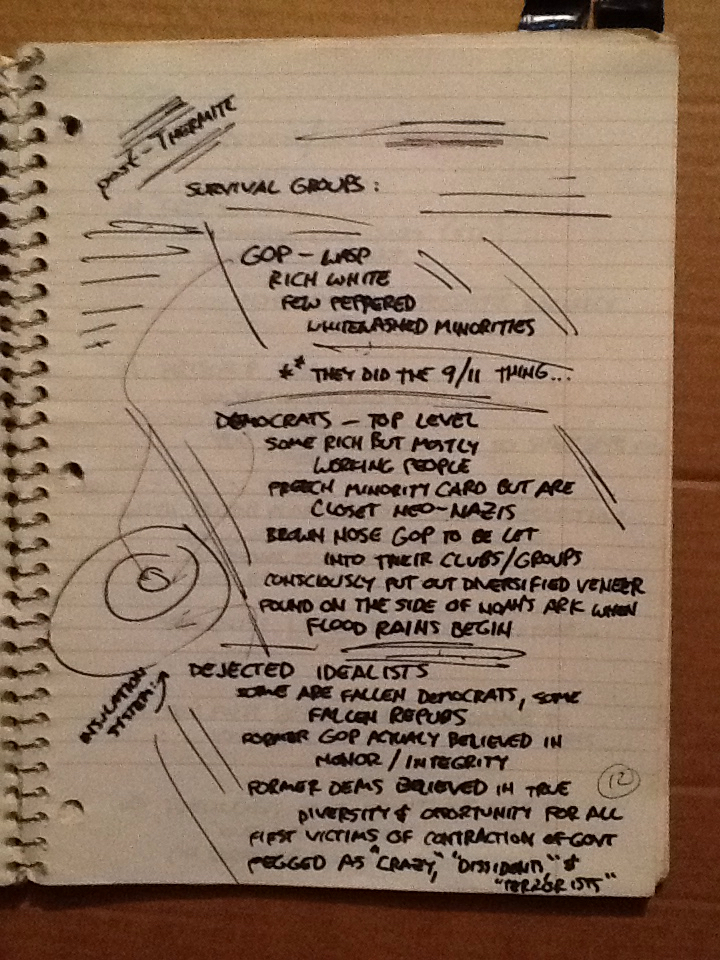 post-THERMITE
SURVIVAL GROUPS:
GOP - WASP
RICH WHITE
FEW PEPPERED
WHITEWASHED MINORITIES
** THEY DID THE 9/11 THING...
DEMOCRATS - TOP LEVEL
SOME RICH BUT MOSTLY
WORKING PEOPLE
PREECH MINORITY CARD BUT ARE
CLOSET NEO-NAZIS
BROWN NOSE GOP TO BE LET
INTO THEIR CLUBS/GROUPS
CONSCIOUSLY PUT OUT DIVERSIFIED VENEER
FOUND ON THE SIDE OF NOAH'S ARK WHEN
FLOOD RAINS BEGIN
INSULATION
SYSTEM:
DEJECTED IDEALISTS
SOME ARE FALLEN DEMOCRATS, SOME
FALLEN REPUBS
FORMER GOP ACTUALY BELIEVED IN
HONOR / INTEGRITY
FORMER DEMS BELIEVED IN TRUE
DIVERSITY & OPPORTUNITY FOR ALL
FIRST VICTIMS OF CONTRACTION OF GOVT
PEGGED AS "CRAZY," "DISSIDENTS," &
"TERRORISTS"
12